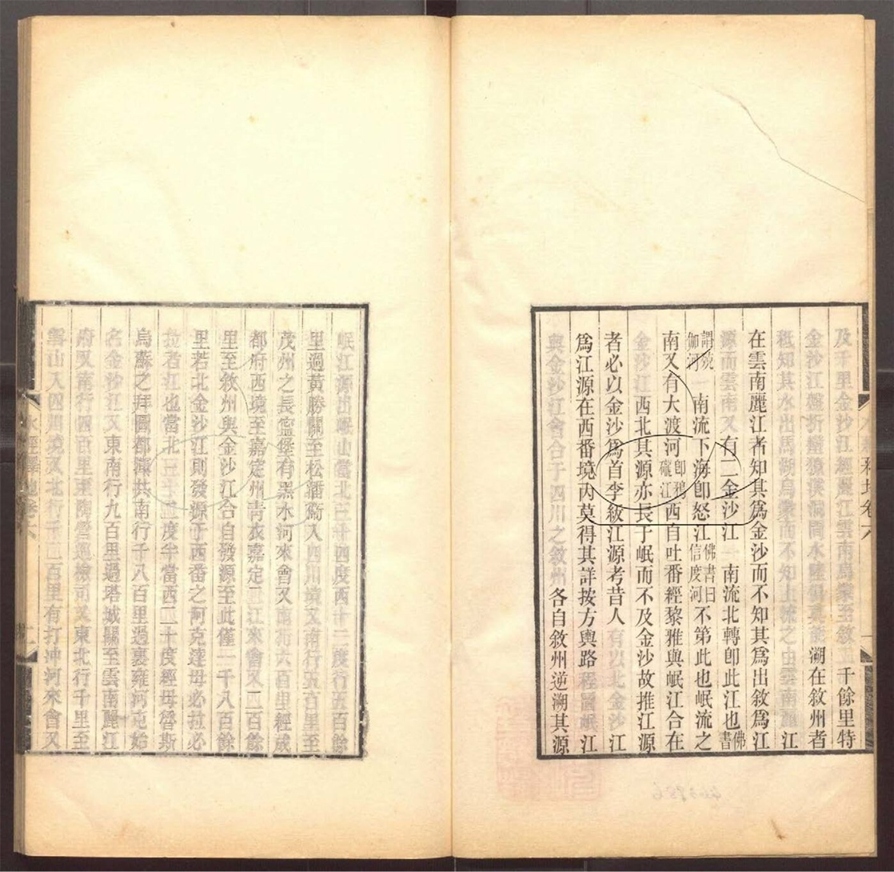 及千里金沙江經麗江雲南烏蒙至敘千餘里特
金沙江盤折蠻獠谿洞間水陸俱莫能溯在敘州者
秪知其水出馬湖烏蒙而不知上流之由雲南麗江
在雲南麗江者知其爲金沙而不知其爲出敘爲江
源而雲南又有二金沙江一南流北轉卽此江也佛書
謂殑伽河一南流下海卽怒江佛書曰信度河不第此也岷流之
南又有大渡河卽鴉礲江西自吐番經黎雅與岷江合在
金沙江西北其源亦長于岷而不及金沙故推江源
者必以金沙爲首李紱江源考昔人有以北金沙江
爲江源在西番境內莫得其詳按方輿路程圖岷江
與金沙江會合于四川之敘州各自敘州逆溯其源
岷江源出岷山當北三十四度西十二度行五百餘
里過黃勝關至松潘衞入四川境又南行五百里至
茂州之長寧堡有黑水河來會又南行六百里經成
都府西境至嘉定州青衣嘉定二江來會又二百餘
里至敘州與金沙江合自發源至此僅一千八百餘
里若北金沙江則發源于西番之阿克達母必拉必
拉者江也當北三十五度半當西二十度經母魯斯
烏蘇之拜圖都渾共南行千八百里過裏雍河克始
名金沙江又東南行九百里過塔城關至雲南麗江
府又南行四百里至營巡檢司又東北行千里至
雪山入四川境又北行千二百里有打冲河來會又
水經釋地卷六